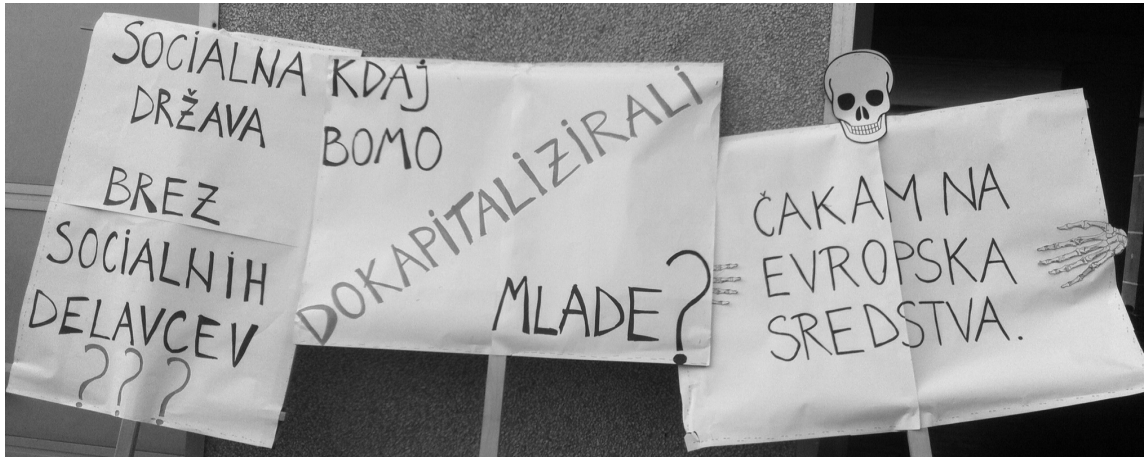 SOCIALNA
DRŽAVA
BREZ
SOCIALNIH
DELAVCEV
???
KDAJ
BOMO
DOKAPITALIZIRALI
MLADE?
ČAKAM NA
EVROPSKA
SREDSTVA.